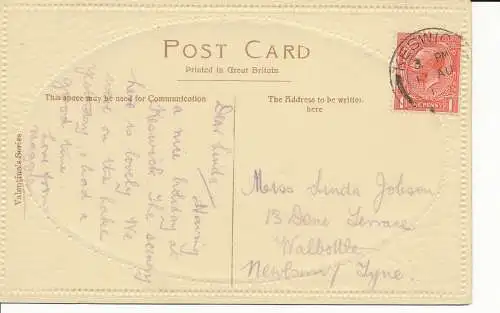 POST CARD
Printed in Great Britain
This space may be used for Communication
The Address to be written
here
Valentine's Series
KESWICK
PM
AU
PENNY
Dear Linda
Having
a nice holiday at
Keswick The scenery
here is lovely. We
were on the Lake
yesterday, had a
good time.
Love from
Miss Linda Jobson
13 Dene Terrace
Walbottle
Newburn Tyne.